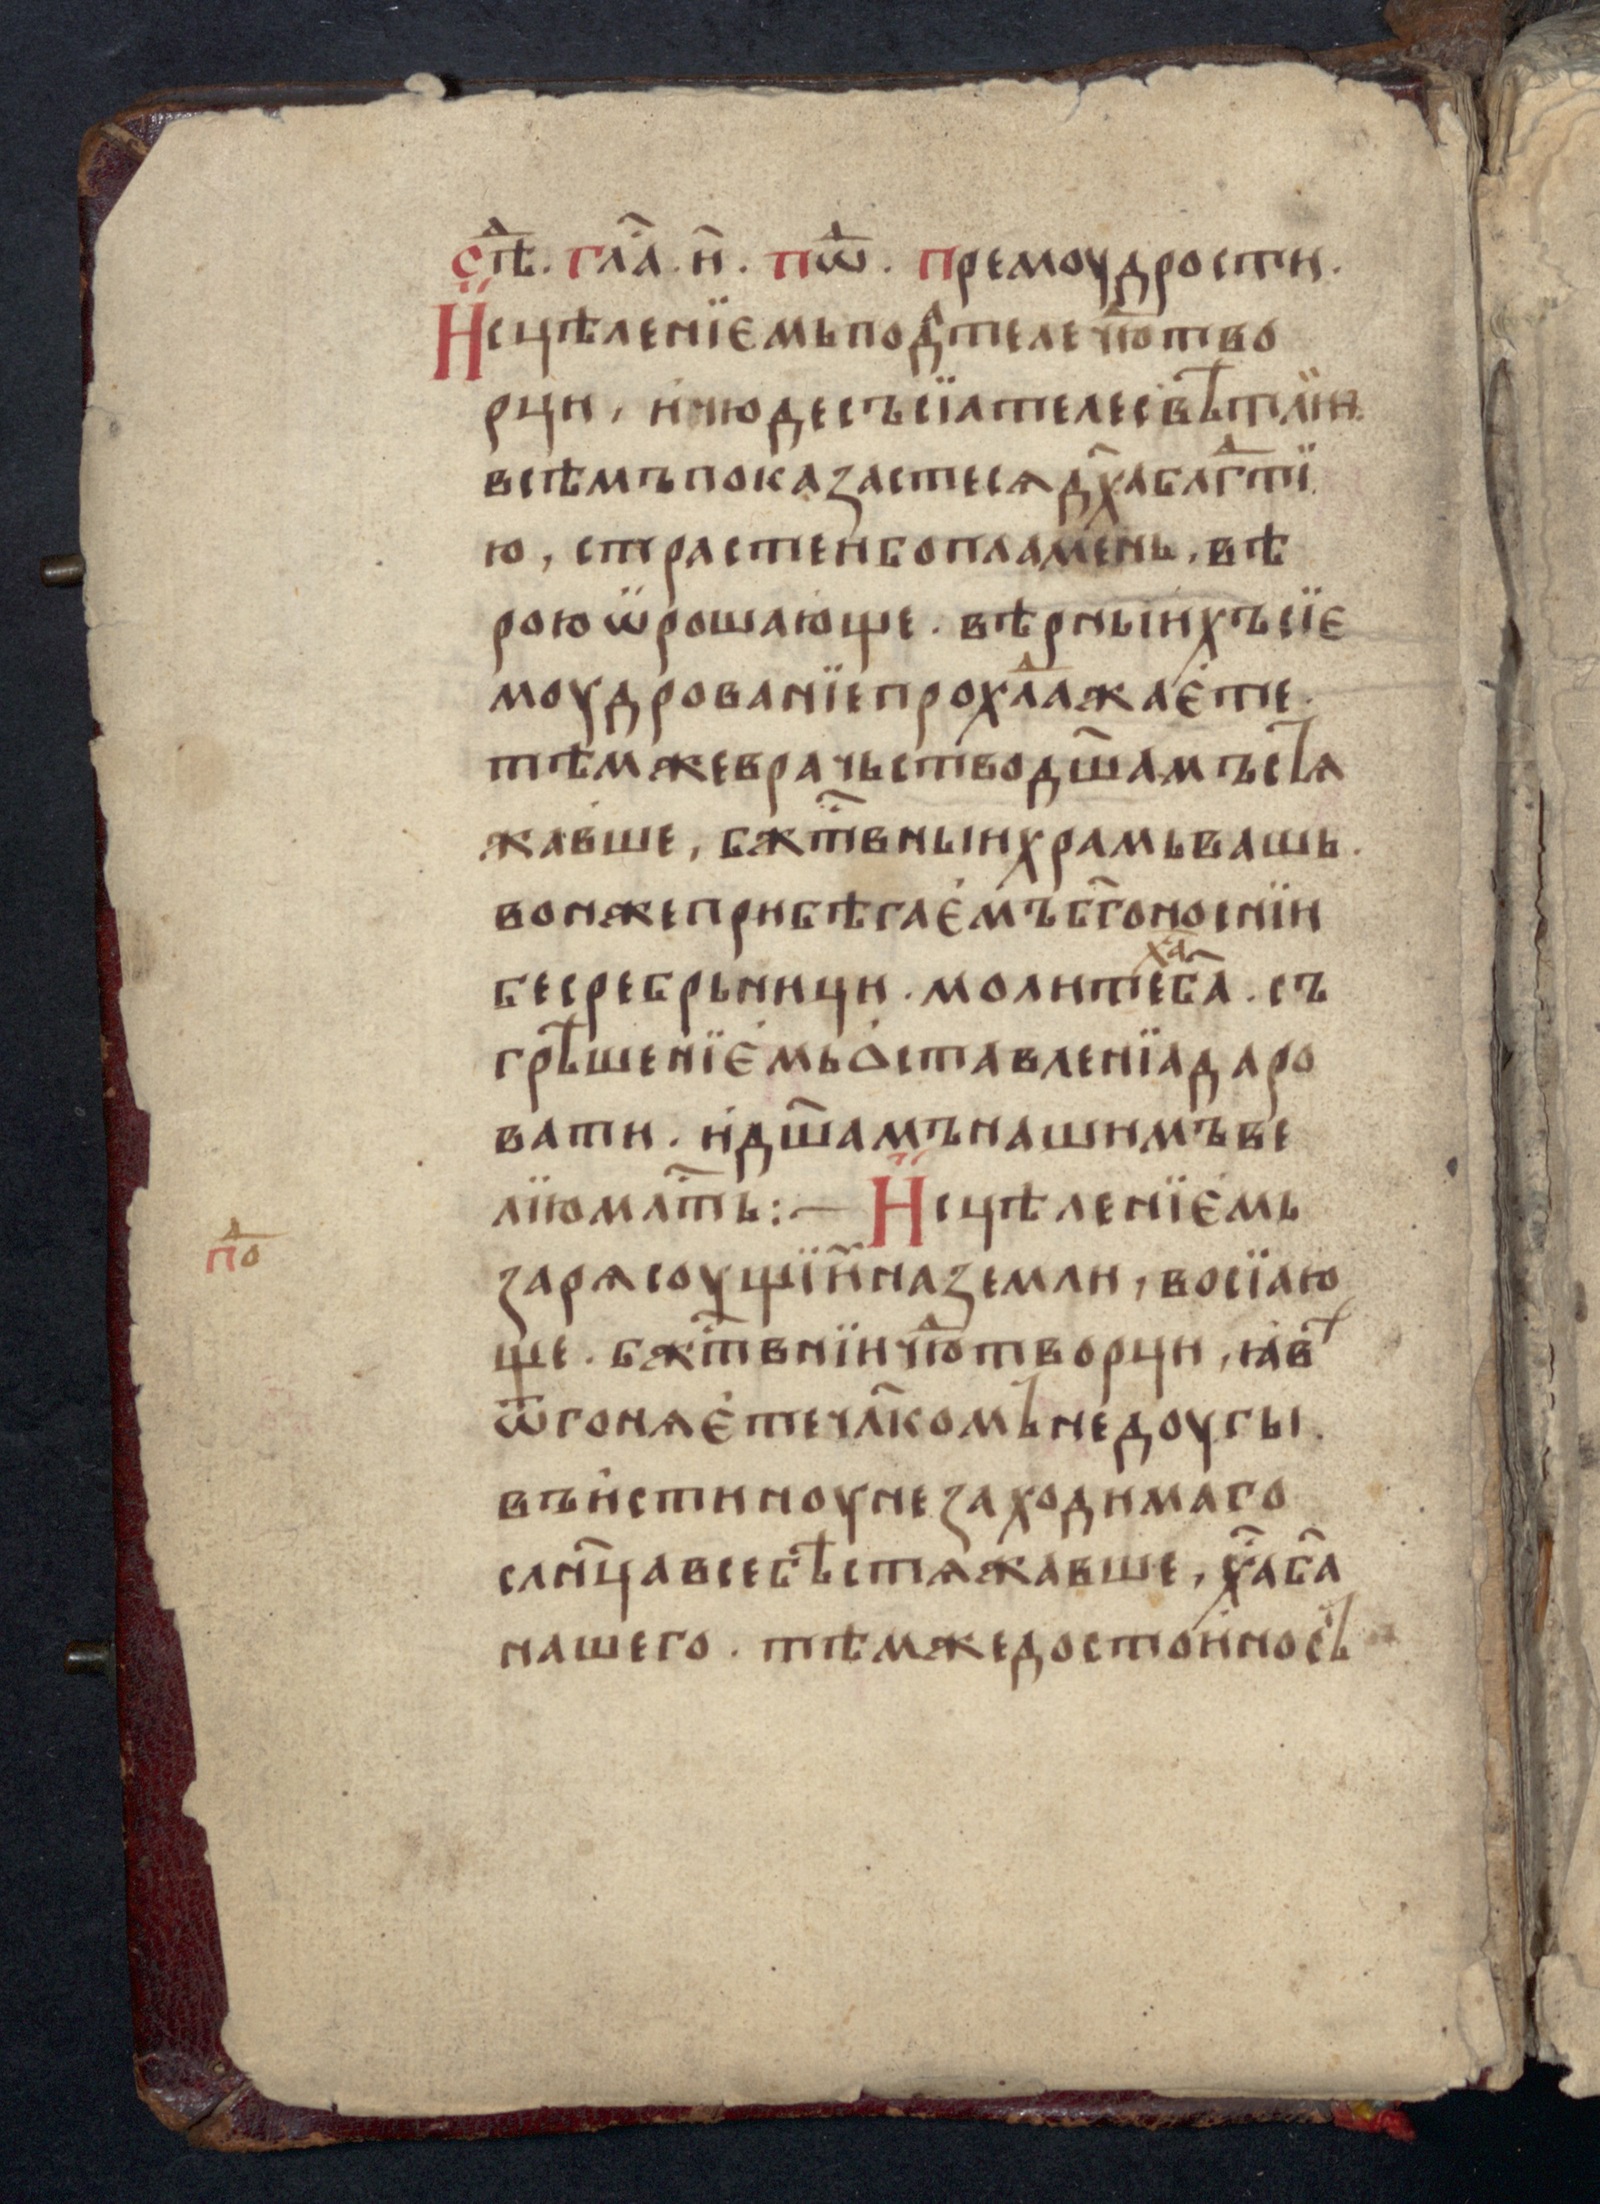 сѣⷣ. гла҃. и҃. пѡⷣ. премоудрости.
Исцѣленїємь подателе чюⷣтво
рци, и чюдесъ сїателе свѣтлїи.
всѣмъ показастеся дх҃а блгⷣтї
ю, страстеи бо пламень. вѣ
рою ѡрошающе. вѣрныихъ сїє
моудрованїе прохлⷣажаєте.
тѣмже врачьство дш҃амъ стя
жавше, бжⷭ҇твныи храмь вашь.
вонже прибѣгаємъ бг҃оноснїи
бесребрьници. молите ха҃ ба҃. съ
грѣшенїємь оставленїа даро
вати. и дш҃амъ нашимъ ве
лїю млⷭ҇ть:— Исцѣленїємь
поⷣ
заря соущїи на земли, восїаю
ще. бжⷭ҇твнїи чюⷣтворци, ꙗвѣ
ѿгоняєте чл҃комъ недоугы.
въ истиноу незаходимаго
слн҃ца всебѣ стяжавше, ха҃ ба҃
нашего. тѣмже достоинось